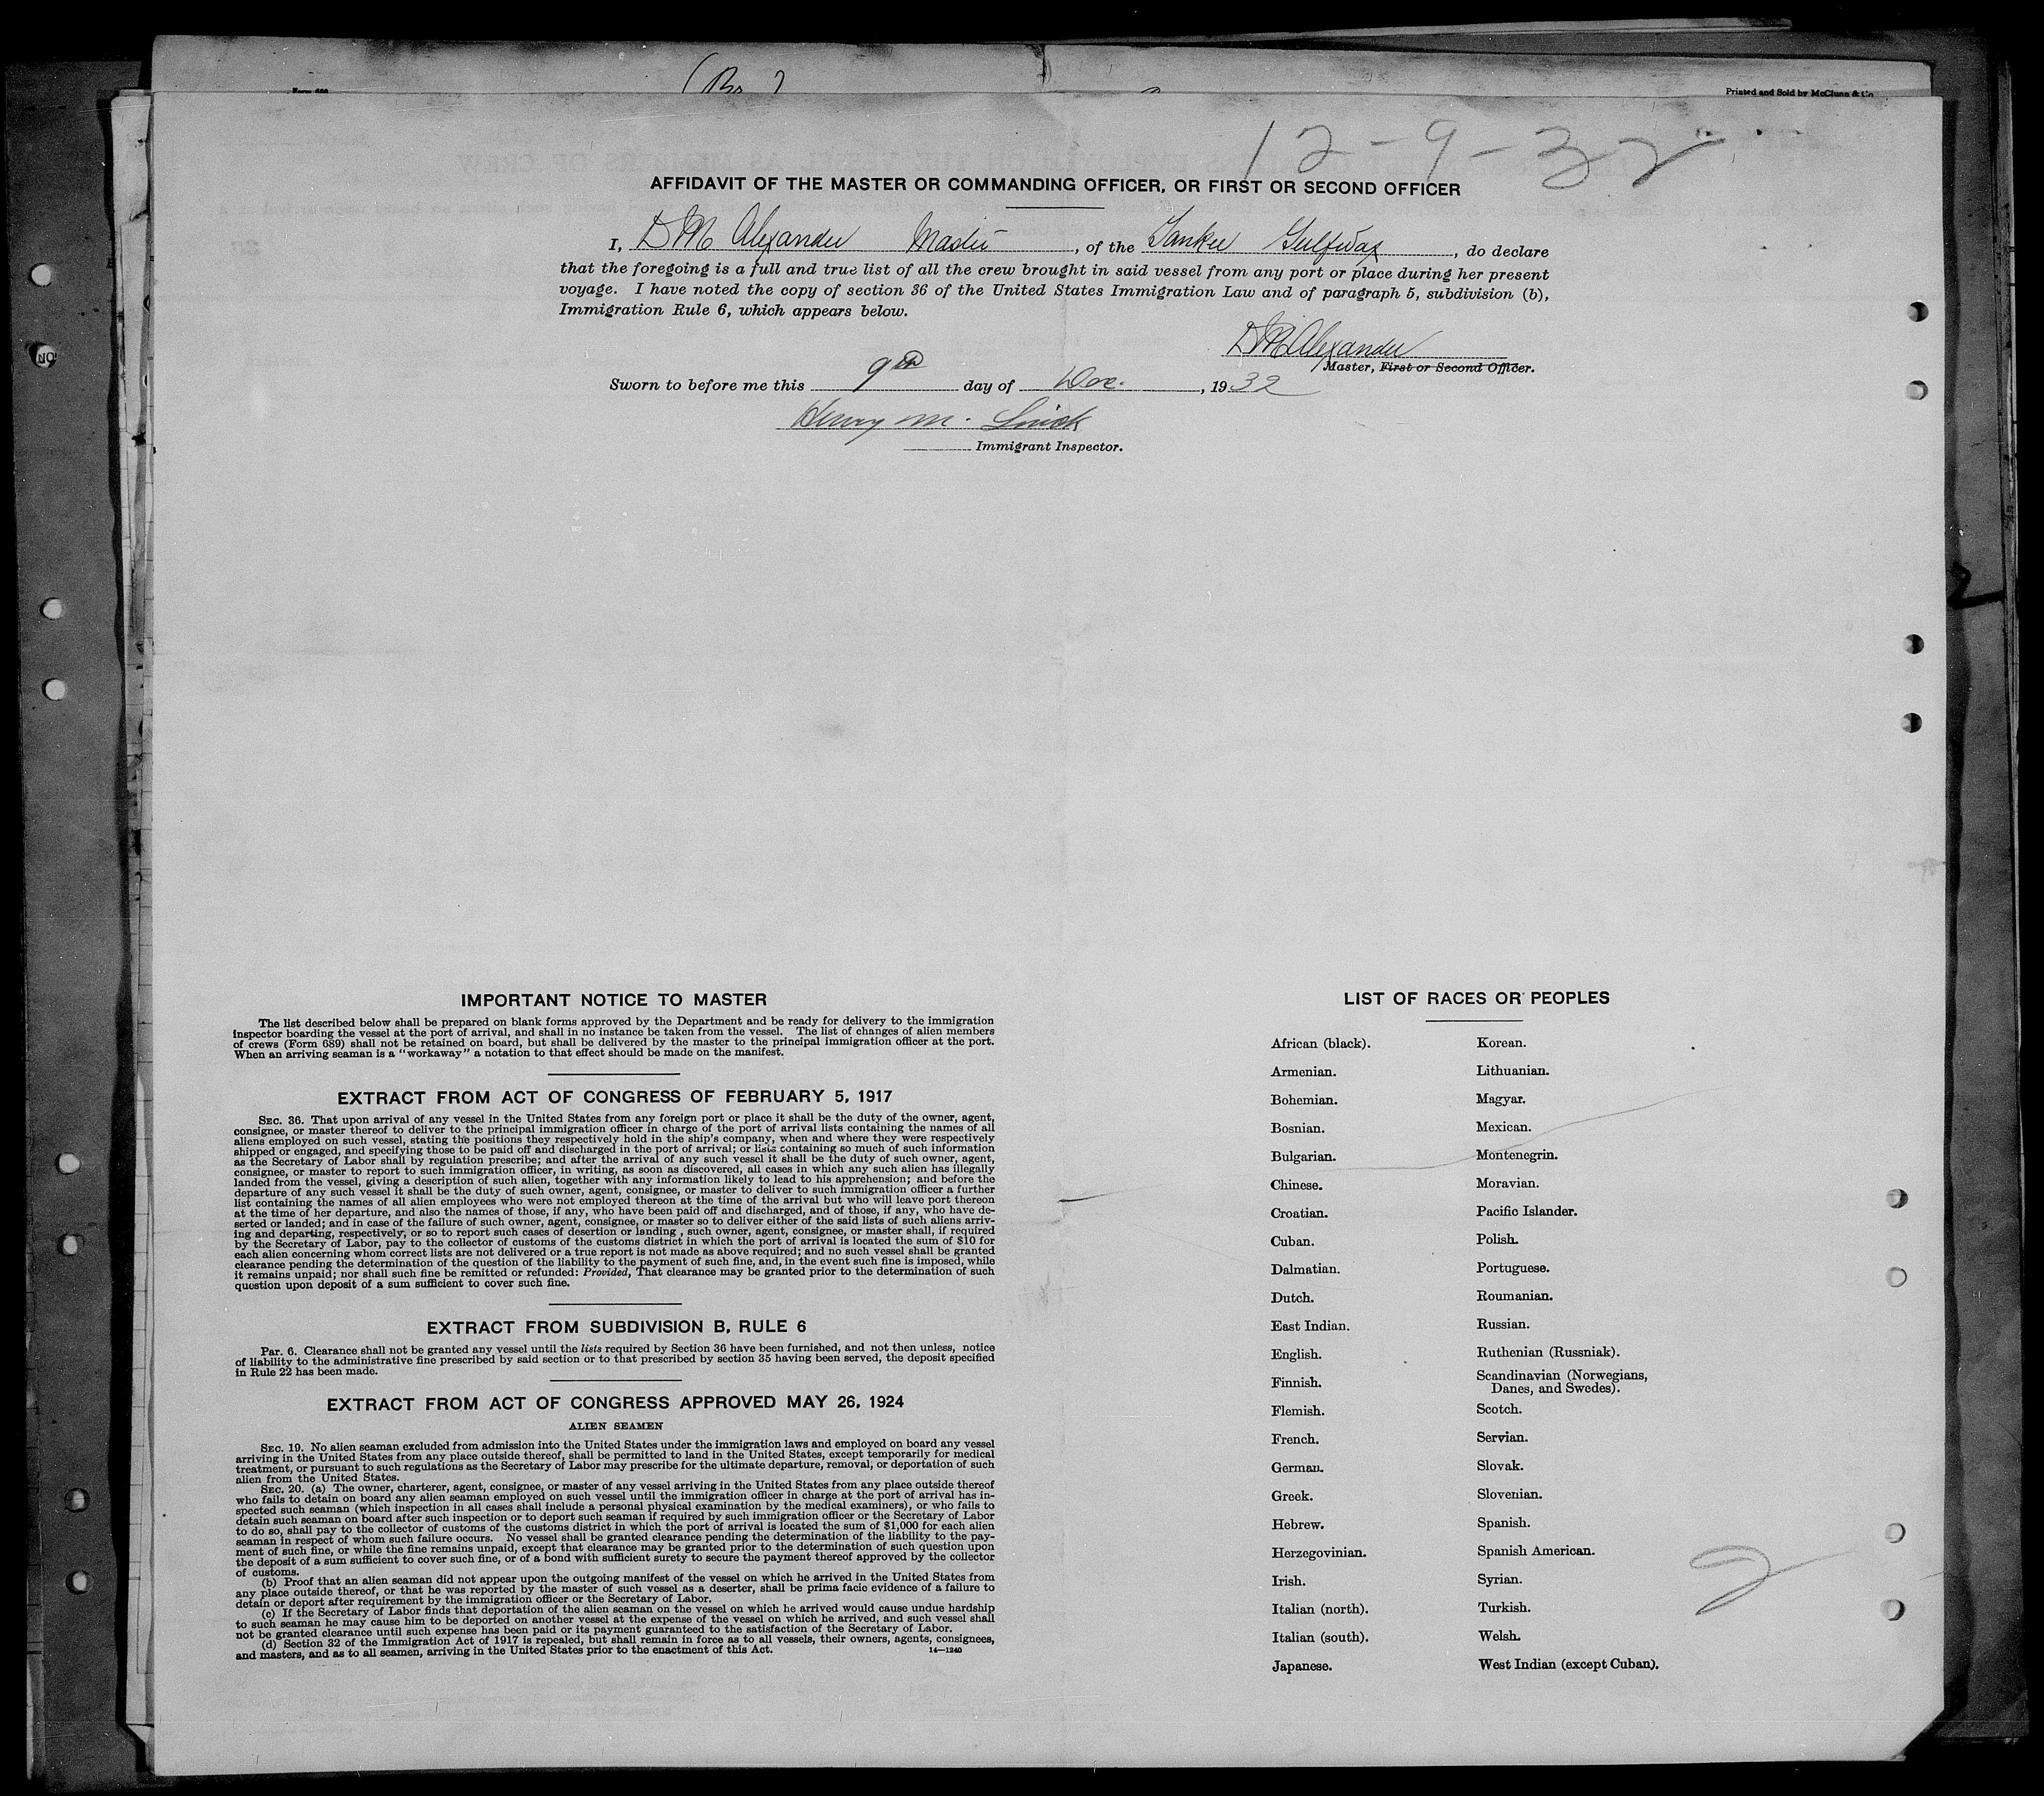 Printed and Sold by McClunn & Co.
12-9-32
AFFIDAVIT OF THE MASTER OR COMMANDING OFFICER, OR FIRST OR SECOND OFFICER
I, D M Alexander Master, of the Tanker Gulfwax, do declare
that the foregoing is a full and true list of all the crew brought in said vessel from any port or place during her present
voyage. I have noted the copy of section 36 of the United States Immigration Law and of paragraph 5, subdivision (b),
Immigration Rule 6, which appears below.
D M Alexander
Master, First or Second Officer.
Sworn to before me this 9th day of Dec., 1932
Henry M.
Immigrant Inspector.
IMPORTANT NOTICE TO MASTER
The list described below shall be prepared on blank forms approved by the Department and be ready for delivery to the immigration
inspector boarding the vessel at the port of arrival, and shall in no instance be taken from the vessel. The list of changes of alien members
of crews (Form 689) shall not be retained on board, but shall be delivered by the master to the principal immigration officer at the port.
When an arriving seaman is a "workaway" a notation to that effect should be made on the manifest.
EXTRACT FROM ACT OF CONGRESS OF FEBRUARY 5, 1917
SEC. 36. That upon arrival of any vessel in the United States from any foreign port or place it shall be the duty of the owner, agent,
consignee, or master thereof to deliver to the principal immigration officer in charge of the port of arrival lists containing the names of all
aliens employed on such vessel, stating the positions they respectively hold in the ship's company, when and where they were respectively
shipped or engaged, and specifying those to be paid off and discharged in the port of arrival; or lists containing so much of such information
as the Secretary of Labor shall by regulation prescribe; and after the arrival of any such vessel it shall be the duty of such owner, agent,
consignee, or master to report to such immigration officer, in writing, as soon as discovered, all cases in which any such alien has illegally
landed from the vessel, giving a description of such alien, together with any information likely to lead to his apprehension; and before the
departure of any such vessel it shall be the duty of such owner, agent, consignee, or master to deliver to such immigration officer a further
list containing the names of all alien employees who were not employed thereon at the time of the arrival but who will leave port thereon
at the time of her departure, and also the names of those, if any, who have been paid off and discharged, and of those, if any, who have de-
serted or landed; and in case of the failure of such owner, agent, consignee, or master so to deliver either of the said lists of such aliens arriv-
ing and departing, respectively, or so to report such cases of desertion or landing , such owner, agent, consignee, or master shall, if required
by the Secretary of Labor, pay to the collector of customs of the customs district in which the port of arrival is located the sum of $10 for
each alien concerning whom correct lists are not delivered or a true report is not made as above required; and no such vessel shall be granted
clearance pending the determination of the question of the liability to the payment of such fine, and, in the event such fine is imposed, while
it remains unpaid; nor shall such fine be remitted or refunded: Provided, That clearance may be granted prior to the determination of such
question upon deposit of a sum sufficient to cover such fine.
EXTRACT FROM SUBDIVISION B, RULE 6
Par. 6. Clearance shall not be granted any vessel until the lists required by Section 36 have been furnished, and not then unless, notice
of liability to the administrative fine prescribed by said section or to that prescribed by section 35 having been served, the deposit specified
in Rule 22 has been made.
EXTRACT FROM ACT OF CONGRESS APPROVED MAY 26, 1924
ALIEN SEAMEN
SEC. 19. No alien seaman excluded from admission into the United States under the immigration laws and employed on board any vessel
arriving in the United States from any place outside thereof, shall be permitted to land in the United States, except temporarily for medical
treatment, or pursuant to such regulations as the Secretary of Labor may prescribe for the ultimate departure, removal, or deportation of such
alien from the United States.
SEC. 20. (a) The owner, charterer, agent, consignee, or master of any vessel arriving in the United States from any place outside thereof
who fails to detain on board any alien seaman employed on such vessel until the immigration officer in charge at the port of arrival has in-
spected such seaman (which inspection in all cases shall include a personal physical examination by the medical examiners), or who fails to
detain such seaman on board after such inspection or to deport such seaman if required by such immigration officer or the Secretary of Labor
to do so, shall pay to the collector of customs of the customs district in which the port of arrival is located the sum of $1,000 for each alien
seaman in respect of whom such failure occurs. No vessel shall be granted clearance pending the determination of the liability to the pay-
ment of such fine, or while the fine remains unpaid, except that clearance may be granted prior to the determination of such question upon
the deposit of a sum sufficient to cover such fine, or of a bond with sufficient surety to secure the payment thereof approved by the collector
of customs.
(b) Proof that an alien seaman did not appear upon the outgoing manifest of the vessel on which he arrived in the United States from
any place outside thereof, or that he was reported by the master of such vessel as a deserter, shall be prima facie evidence of a failure to
detain or deport after requirement by the immigration officer or the Secretary of Labor.
(c) If the Secretary of Labor finds that deportation of the alien seaman on the vessel on which he arrived would cause undue hardship
to such seaman he may cause him to be deported on another vessel at the expense of the vessel on which he arrived, and such vessel shall
not be granted clearance until such expense has been paid or its payment guaranteed to the satisfaction of the Secretary of Labor.
(d) Section 32 of the Immigration Act of 1917 is repealed, but shall remain in force as to all vessels, their owners, agents, consignees,
and masters, and as to all seamen, arriving in the United States prior to the enactment of this Act.
14—1240
LIST OF RACES OR PEOPLES
African (black).
Armenian.
Bohemian.
Bosnian.
Bulgarian.
Chinese.
Croatian.
Cuban.
Dalmatian.
Dutch.
East Indian.
English.
Finnish.
Flemish.
French.
German.
Greek.
Hebrew.
Herzegovinian.
Irish.
Italian (north).
Italian (south).
Japanese.
Korean.
Lithuanian.
Magyar.
Mexican.
Montenegrin.
Moravian.
Pacific Islander.
Polish.
Portuguese.
Roumanian.
Russian.
Ruthenian (Russniak).
Scandinavian (Norwegians,
Danes, and Swedes).
Scotch.
Servian.
Slovak.
Slovenian.
Spanish.
Spanish American.
Syrian.
Turkish.
Welsh.
West Indian (except Cuban).
2